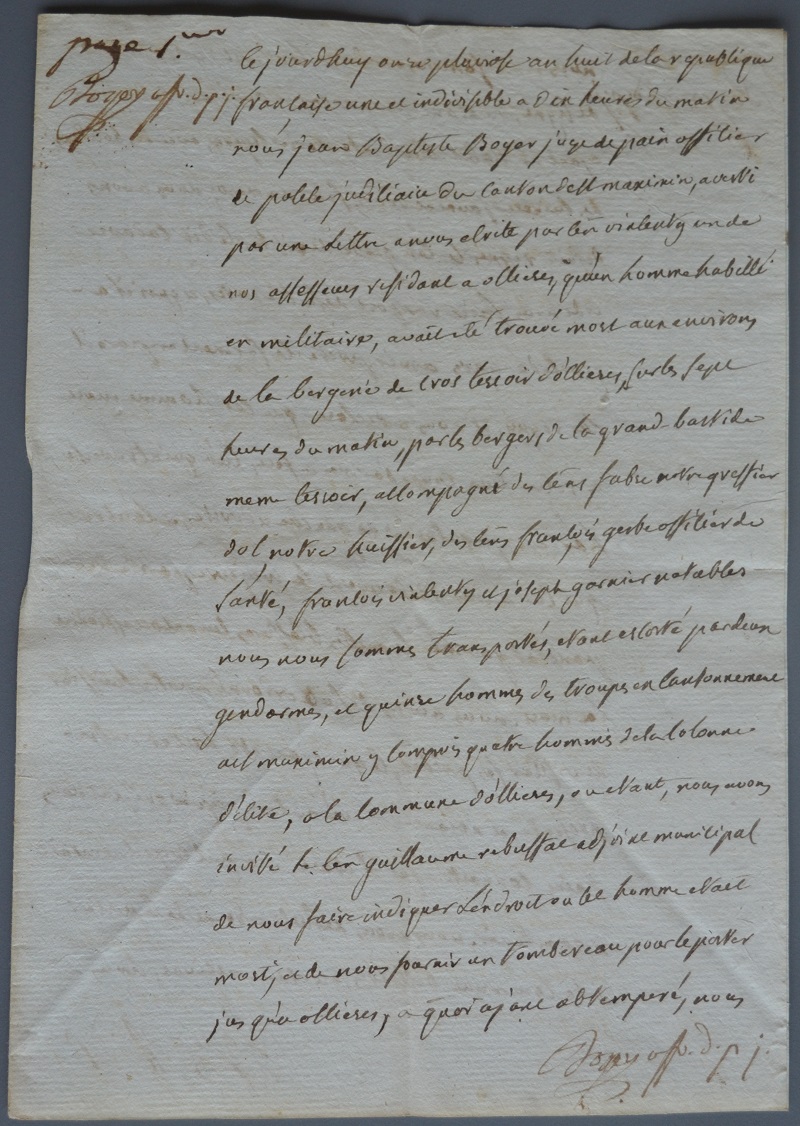 page 1ere
Boyer off. d. p. j.
Ce jourdhuy onze pluviose an huit de la republique
française une et indivisible a dix heures du matin
nous jean Baptiste Boyer juge de paix officier
de police judiciaire du canton de St maximin, averti
par une Lettre a nous ecrite par le cen vincenty un de
nos assesseurs residant a ollieres, qu'un homme habillé
en militaire, avait eté trouvé mort aux environs
de la bergerie de Cros terroir d'ollieres, sur les sept
heures du matin, par les bergers de la grand bastide
meme terroir, accompagné des cens fabre notre greffier
dol notre huissier, des cens françois gerbe officier de
santé, françois vincenty et joseph garnier notables
nous nous sommes transportés, etant escorté par deux
gendarmes, et quinze hommes des troupes en cantonnement
a st maximin y compris quatre hommes de la colonne
d'élite, a la commune d'ollieres, ou etant, nous avons
invité le cen guillaume rebuffat adjoint municipal
de nous faire indiquer L'endroit ou cet homme etait
mort, et de nous fournir un tombereau pour le porter
jusqu'a ollieres, a quoi ayant obtemperé, nous
Boyer off. d. p. j.